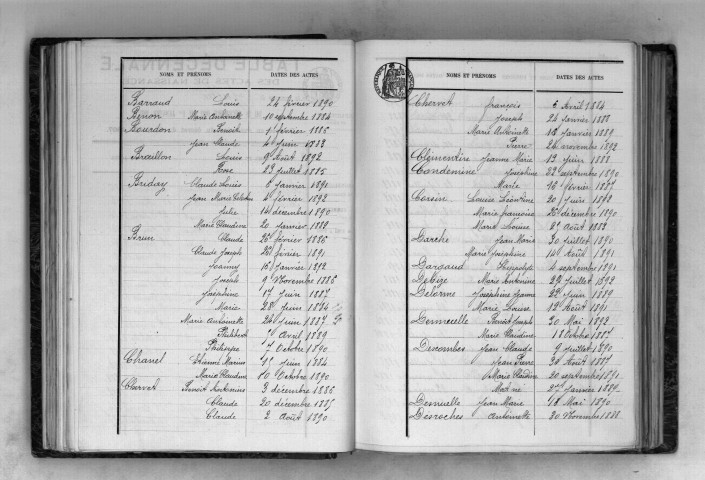 NOMS ET PRÉNOMS DATES DES ACTES
Barraud Louis 24 février 1890
Benon Marie Antoinette 10 septembre 1884
Bourdon Benoit 9 février 1886
Jean Claude 4 juin 1888
Brouillon Louis 9 Août 1892
Rose 23 juillet 1885
Briday Claude Louis 8 janvier 1891
Jean Marie 4 février 1892
Julie 14 décembre 1890
Marie Claudine 20 janvier 1889
Brun Claude 25 février 1886
Claude Joseph 26 février 1891
Joanny 16 janvier 1892
Joseph 9 Novembre 1886
Joséphine 17 juin 1887
Marie 28 juin 1884
Marie Antoinette 24 juin 1887
Philibert Avril 1889
Philippe 7 Octobre 1890
Chanel Etienne Marius juin 1884
Marie Claudine 10 Octobre 1890
Chervet Benoit 3 décembre 1886
Claude 20 décembre 1885
Claude 2 Août 1890
NOMS ET PRÉNOMS DATES DES ACTES
Chervet François 6 Avril 1884
Joseph 24 janvier 1888
Marie Antoinette 18 janvier 1889
Pierre 24 novembre 1892
Clémentine Jeanne Marie 13 juin 1888
Condemine Joséphine 22 septembre 1890
Marie 16 février 1887
Corsin Louise Léontine 20 juin 1892
Marie 25 décembre 1890
Marie Louise 21 Août 1888
Darche Jean Marie 30 juillet 1890
Marie Joséphine 14 Août 1891
Dargaud Philippe 4 septembre 1891
Debize Marie Antonine 29 juillet 1892
Delorme Joséphine Jeanne 22 juin 1889
Marie Louise 12 Août 1891
Benoit Joseph 20 Mai 1892
Marie Claudine 18 Octobre 1887
Descombes Jean Claude 9 juillet 1890
Jean Pierre 29 Août 1887
Marie Claudine 20 septembre 1891
27 janvier 1889
Jean Marie 18 Mai 1890
Desroches Antoinette 20 Novembre 1888